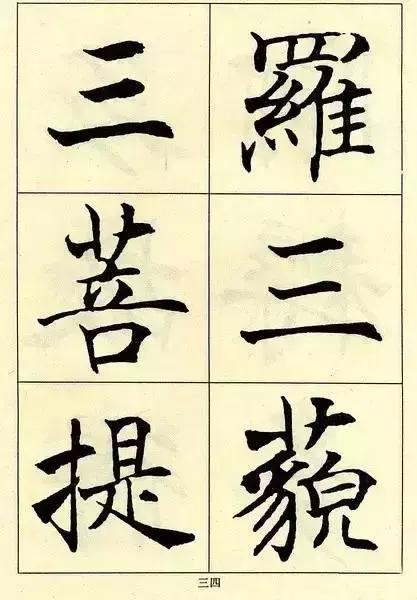 羅三藐
三菩提
三四